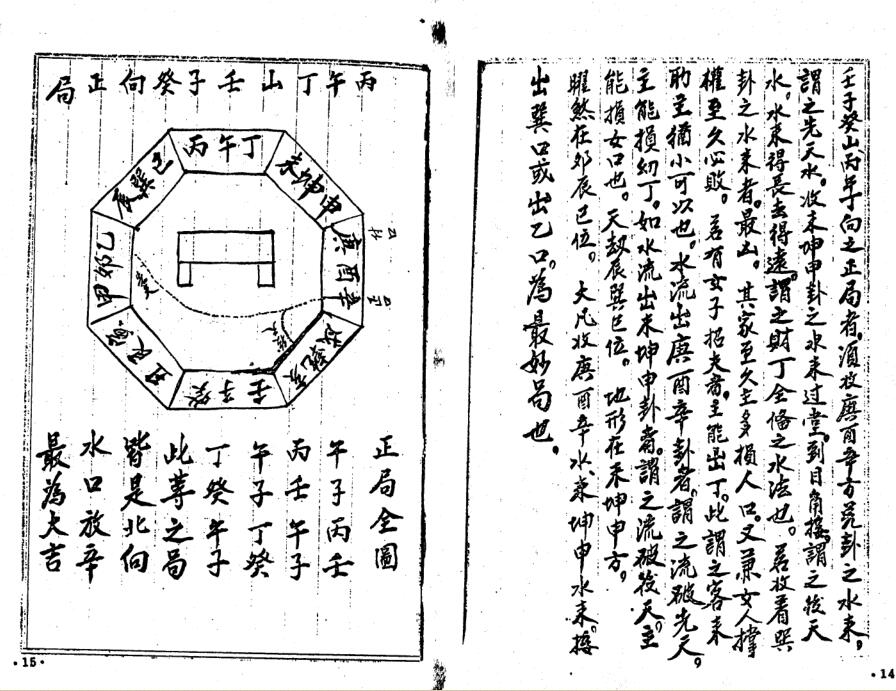 壬子癸山丙午向之正局者。須收庚酉辛方兌卦之水來,
謂之先天水。收未坤申卦之水來过堂。到目角接。謂之後天
水。水來得長去得遠。謂之財丁全俻之水法也。若收着巽
卦之水來者。最凶。其家至久主多損人口。又兼女人撑
權至久必敗。若有女子招夫者。主能出丁。此謂之客來
助主猶小可以也。水流出庚酉辛卦者。謂之流破先天。
主能損幼丁。如水流出未坤申卦者。謂之流破後天。主
能損女口也。天劫辰巽巳位。地形在未坤申方。
曜煞在卯辰巳位。大凡收庚酉辛水、來坤申水來接。
出巽口或出乙口。為最妙局也。
·14
丙午丁山壬子癸向正局
丙午丁
未坤申
庚酉辛
戌乾亥
壬子癸
丑艮
甲卯乙
辰巽巳
正局全圖
午子丙壬
丙壬午子
午子丁癸
丁癸午子
此等之局
皆是北向
水口放辛
最為大吉
·15·